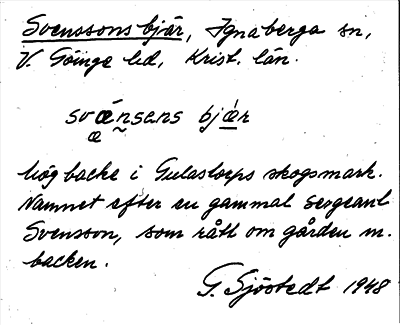 Svenssons bjär, Ignaberga sn,
V. Göinge hd, Krist. län.
svǽnsens bjǽr
æ
hög backe i Gulastorps skogsmark.
Namnet efter en gammal sergeant
Svensson, som rått om gården m.
backen.
G. Sjöstedt 1948